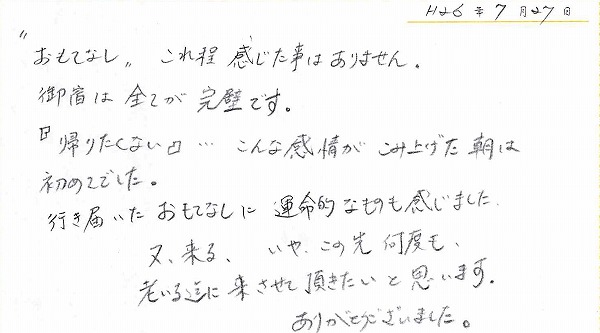 H26年7月27日
"おもてなし" これ程 感じた事はありません。
御宿は全てが完璧です。
『帰りたくない』… こんな感情がこみ上げた朝は
初めてでした。
行き届いたおもてなしに運命的なものも感じました。
又、来る、いや、この先何度も、
老いる迄に来させて頂きたいと思います。
ありがとうございました。